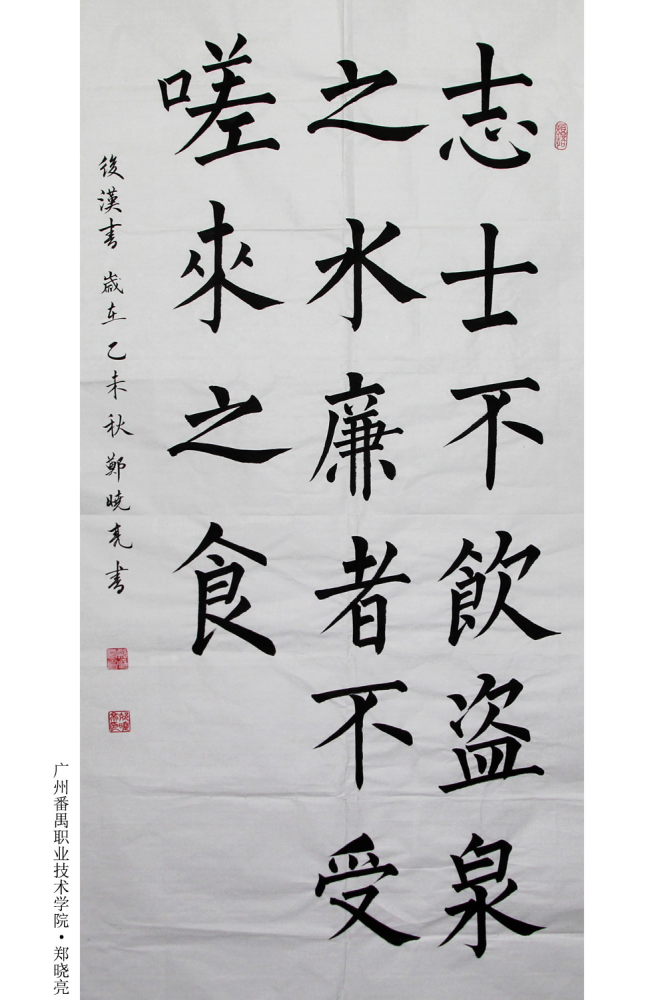 志士不飲盗泉
之水廉者不受
嗟來之食
後漢書 歲在乙未秋 鄭曉亮書
广州番禺职业技术学院·郑晓亮